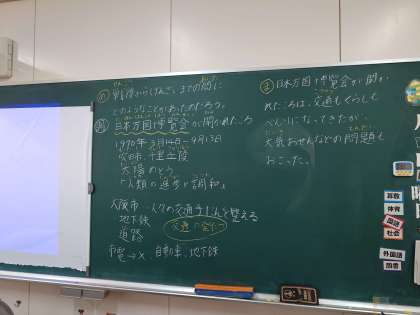 め 戦後からげんざいまでの間に
どのようなことがあったのだろう。
日本万国博覧会が開かれたころ
1970年3月14日~9月13日
吹田市、千里丘陵
太陽のとう
「人類の進歩と調和」
大阪市 人々の交通手だんを整える
地下鉄
道路
市電→× 自動車、地下鉄
ま 日本万国博覧会が開か
れたころは、交通もくらしも
べんりになってきたが、
大気おせんなどの問題も
おこった。
算数
体育
国語
社会
外国語
図書